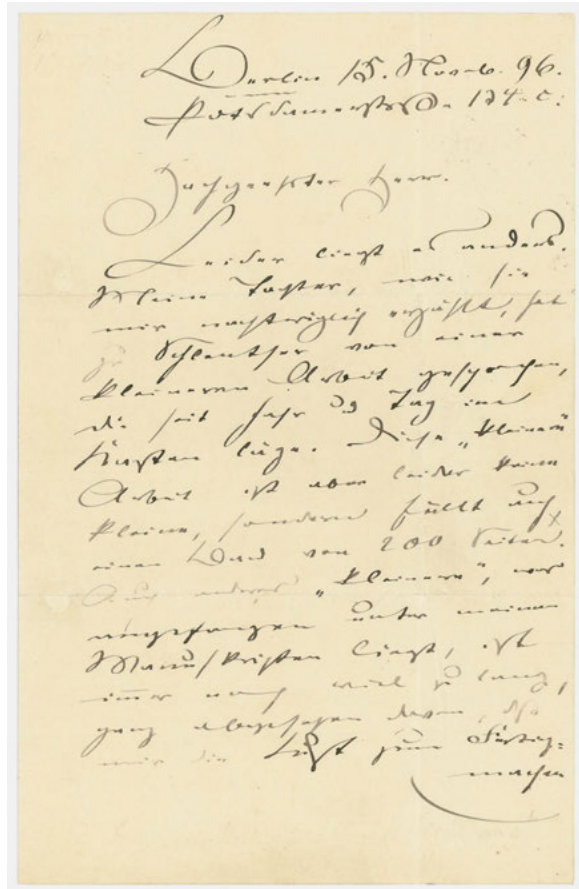 Berlin 15. Novemb. 96.
Potsdamerstraße 134. c.
Hochgeehrter Herr.
Leider liegt es anders.
Meine Tochter, wie sie
mir nachträglich erzählt, hat
zu Schlenther von einer
kleineren Arbeit gesprochen,
die seit Jahr u. Tag im
Kasten läge. Diese „kleinere“
Arbeit ist aber leider keine
kleine, sondern füllt auch
einen Band von 200 Seiten.
Auch andres „kleinere“, was
angefangen unter meinen
Manuskripten liegt, ist
immer noch viel zu lang,
ganz abgesehen davon, daß
mir die Lust zum Fertig-
machen